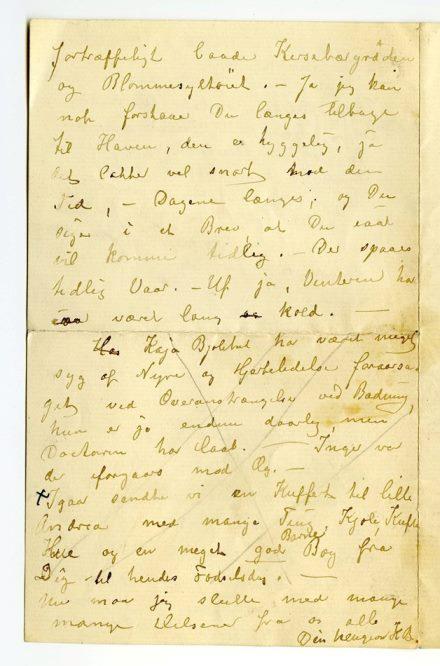 fortræffeligt baade Kirsebærgrøden
og Blommesyltetöiet. — Ja jeg kan
nok forstaae Du længes tilbage
til Haven, den er hyggelig, ja
det lakker vel snart mod den
Tid, — Dagene længes; og Du
siger i et Brev, at Du
vil komme tidlig. — Der spaaes
tidlig Vaar. — Uf ja, Vinteren har
været lang kold. —
Kaja har været meget
syg af Nyre og Hjertelidelse foraarsa-
get ved Overanstrengelse ved Badning,
hun er jo endnu daarlig, men
Doctoren har Haab. — Inger var
der forgaars med Og. —
+ Igaar sendte vi en Kuffert til lille
Andrea med mange Ting, Kjole,
Hue og en meget god Børne Bog fra
Dig til hendes Fødselsdag. —
Nu maa jeg slutte med mange
mange Hilsener fra os alle
Din hengivne